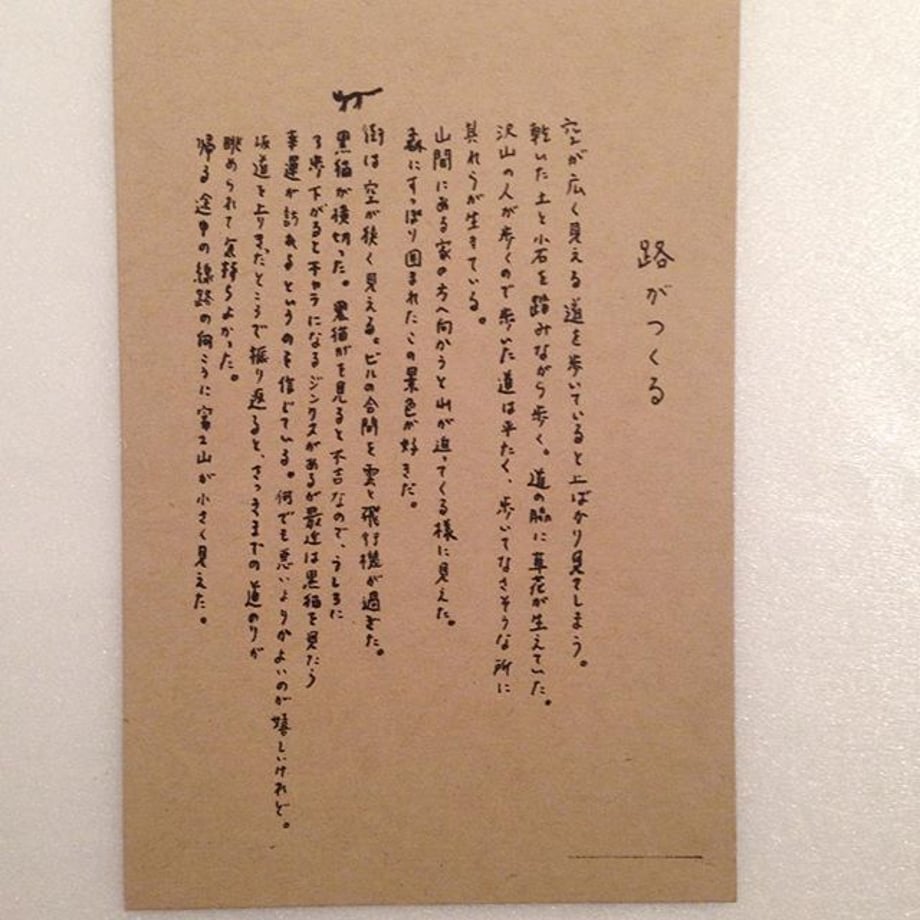 路がつくる
空が広く見える道を歩いていると上ばかり見てしまう。
乾いた土と小石を踏みながら歩く。道の脇に草花が生えていた。
沢山の人が歩くので歩いた道は平たく、歩いてなさそうな所に
其れらが生きている。
山間にある家の方へ向かうと山が迫ってくる様に見えた。
森にすっぽり囲まれたこの景色が好きだ。
街は空が狭く見える。ビルの合間を雲と飛行機が過ぎた。
黒猫が横切った。黒猫がを見ると不吉なので、うしろに
3歩下がるとチャラになるジンクスがあるが最近は黒猫を見たら
幸運が訪れるというのを信じている。何でも悪いよりかよいのが嬉しいけれど。
坂道を上りきったところで振り返ると、さっきまでの道のりが
眺められて気持ちよかった。
帰る途中の線路の向こうに富士山が小さく見えた。